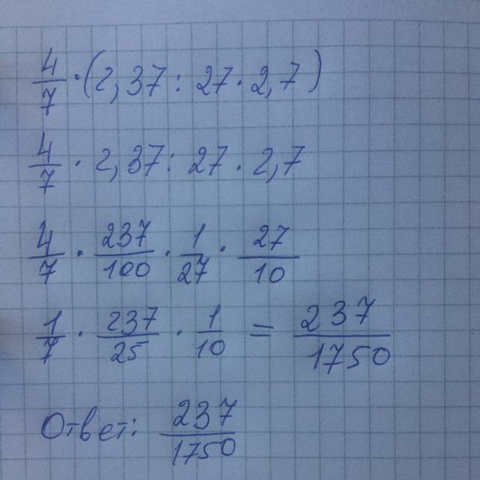 4/7 · (2,37 : 27 · 2,7)
4/7 · 2,37 : 27 · 2,7
4/7 · 237/100 · 1/27 · 27/10
1/7 · 237/25 · 1/10 = 237/1750
Ответ: 237/1750